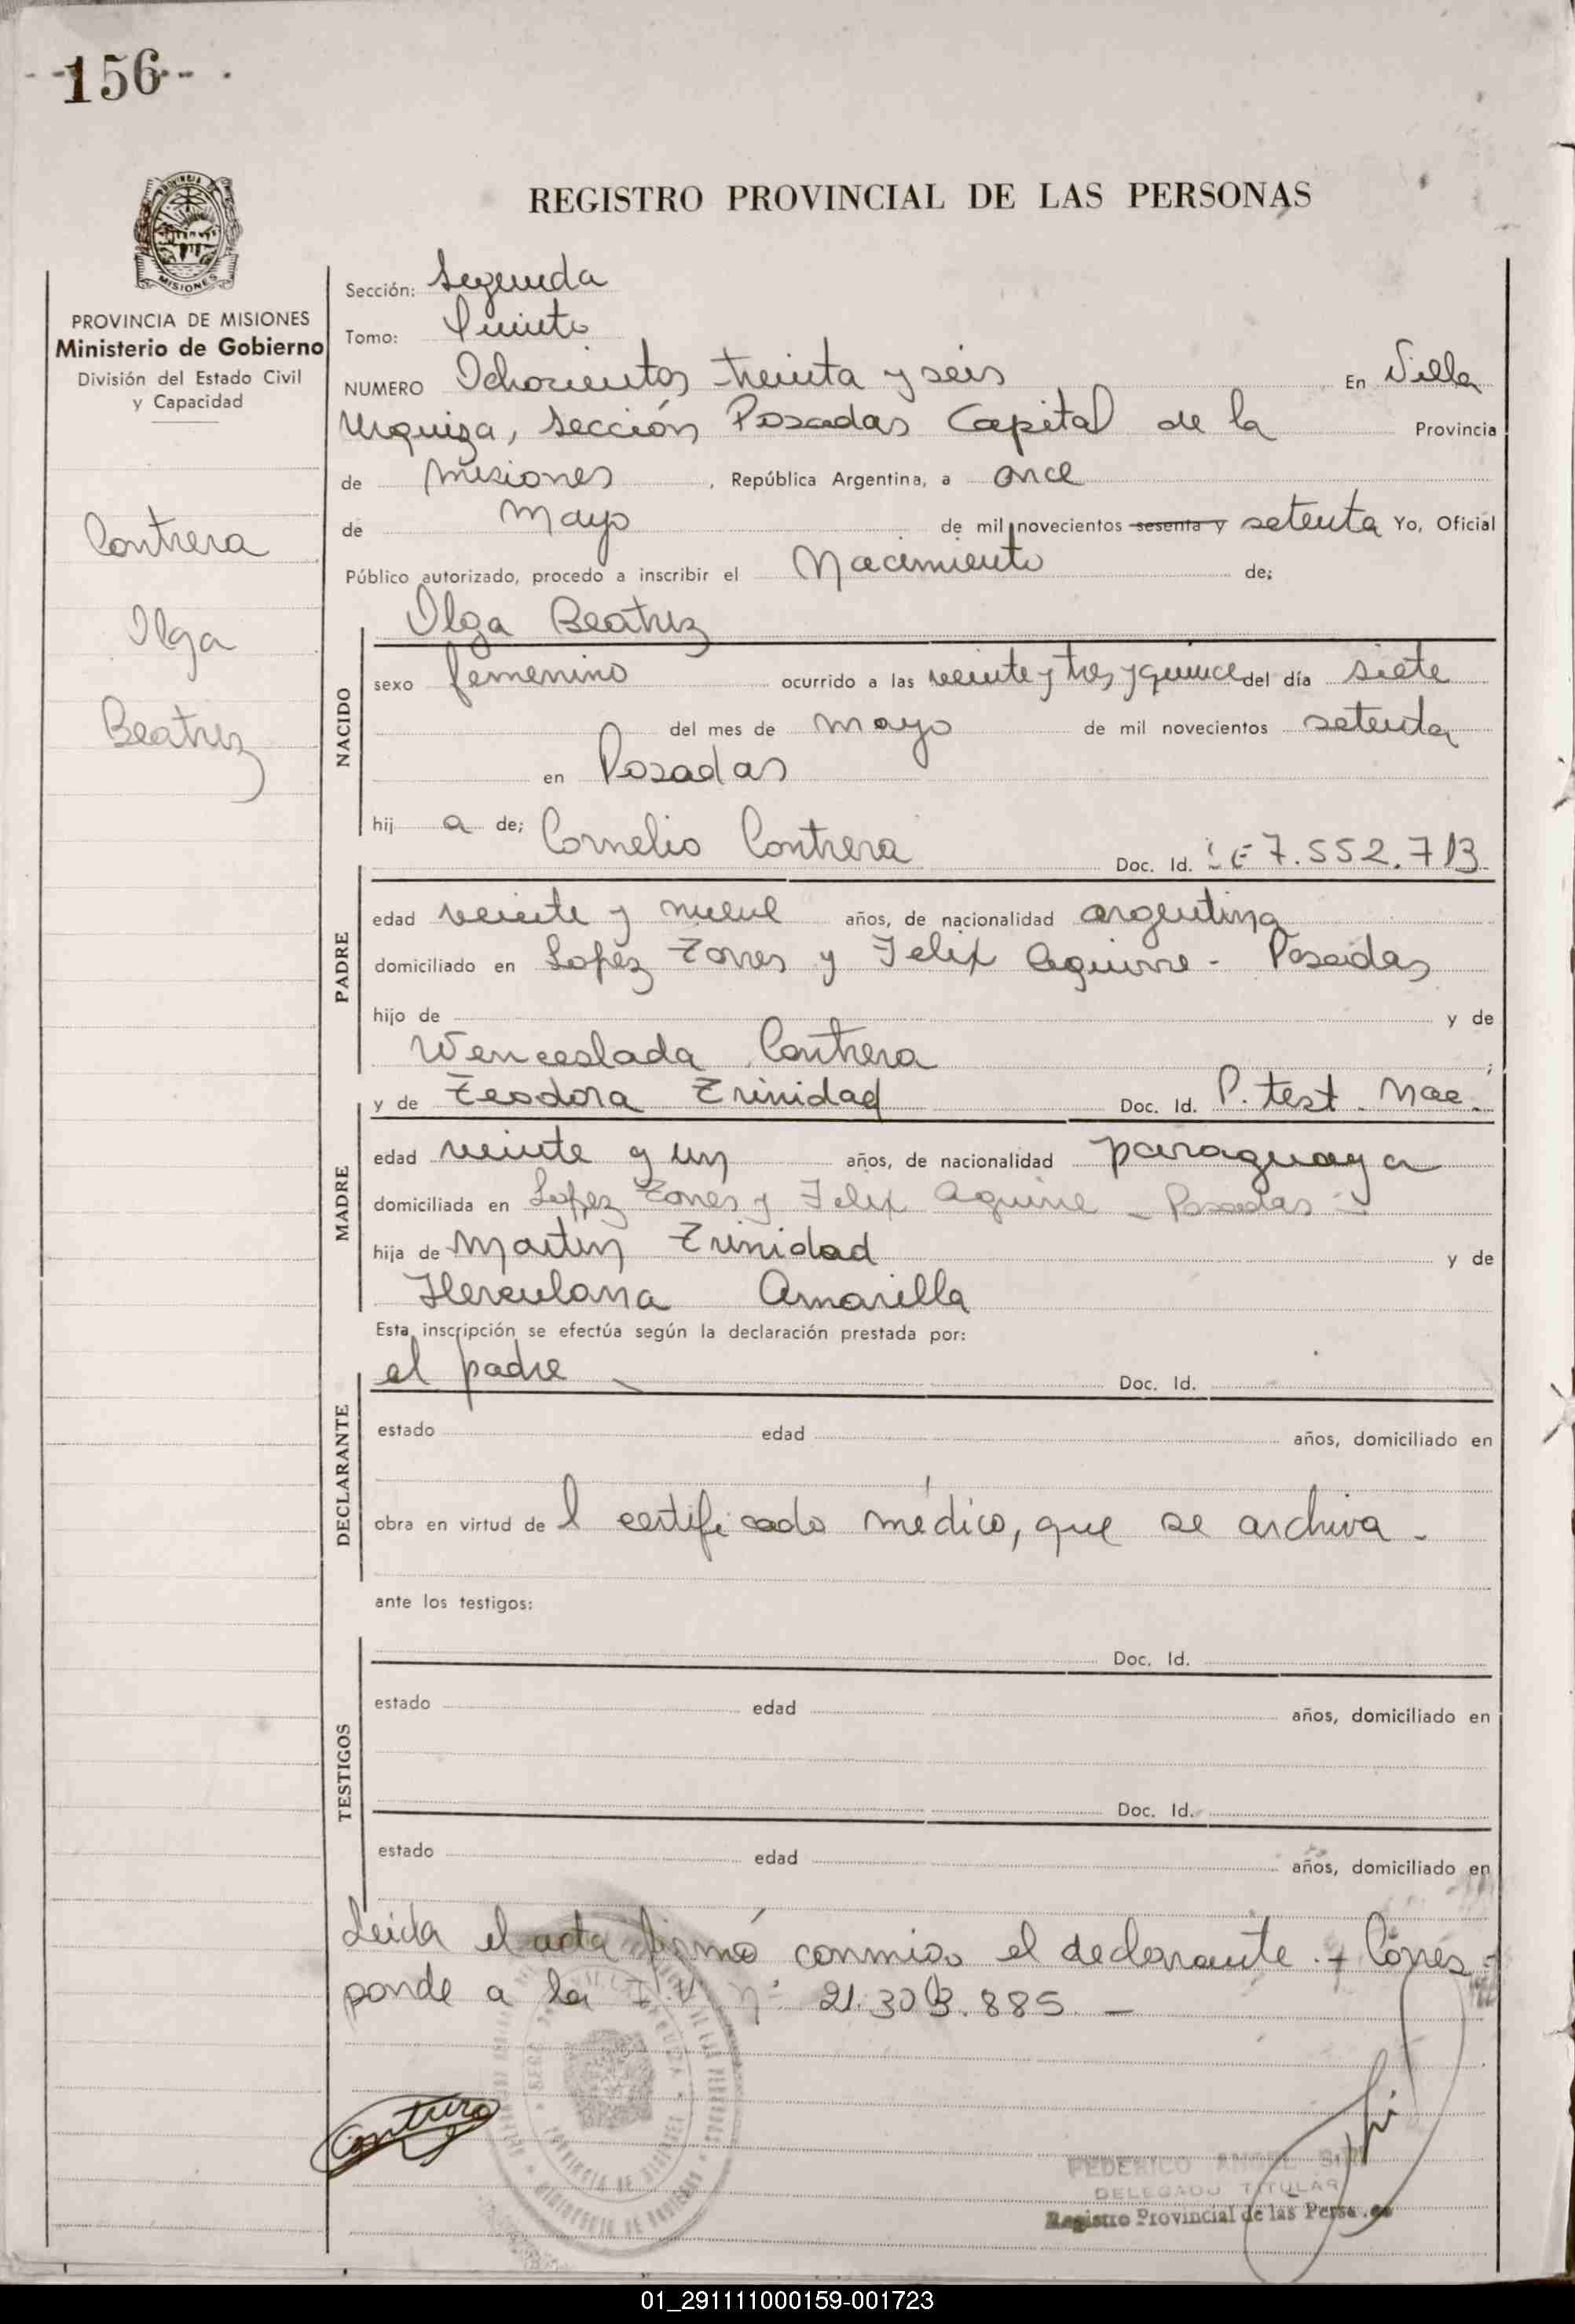 156
REGISTRO PROVINCIAL DE LAS PERSONAS
MISIONES
PROVINCIA DE MISIONES
Ministerio de Gobierno
División del Estado Civil
y Capacidad
Contrera
Olga
Beatriz
Sección: Segunda
Tomo: Quinto
NUMERO Ochocientos treinta y seis En Villa
Urquiza, Sección Posadas Capital de la Provincia
de Misiones, República Argentina, a once
de Mayo de mil novecientos sesenta y setenta Yo, Oficial
Público autorizado, procedo a inscribir el Nacimiento de;
Olga Beatriz
NACIDO
sexo femenino ocurrido a las veinte y tres y quince del día siete
del mes de mayo de mil novecientos setenta
en Posadas
hij a de; Cornelio Contrera Doc. Id. 7.552.713
PADRE
edad veinte y nueve años, de nacionalidad argentina
domiciliado en Lopez Torres y Felix Aguirre - Posadas
hijo de y de
Wenceslada Contrera ;
y de Teodora Trinidad Doc. Id. P. test. Nac.
MADRE
edad veinte y un años, de nacionalidad paraguaya
domiciliada en Lopez Torres y Felix Aguirre - Posadas -
hija de Martin Trinidad y de
Herculana Amarilla
Esta inscripción se efectúa según la declaración prestada por:
el padre Doc. Id.
DECLARANTE
estado edad años, domiciliado en
obra en virtud de l certificado médico, que se archiva -
ante los testigos:
Doc. Id.
TESTIGOS
estado edad años, domiciliado en
Doc. Id.
estado edad años, domiciliado en
Leida el acta firmó conmigo el declarante. + Corres-
ponde a la nº 21.303.885 -
Contrera
FEDERICO ANGEL
DELEGADO TITULAR
Registro Provincial de las
01_291111000159-001723